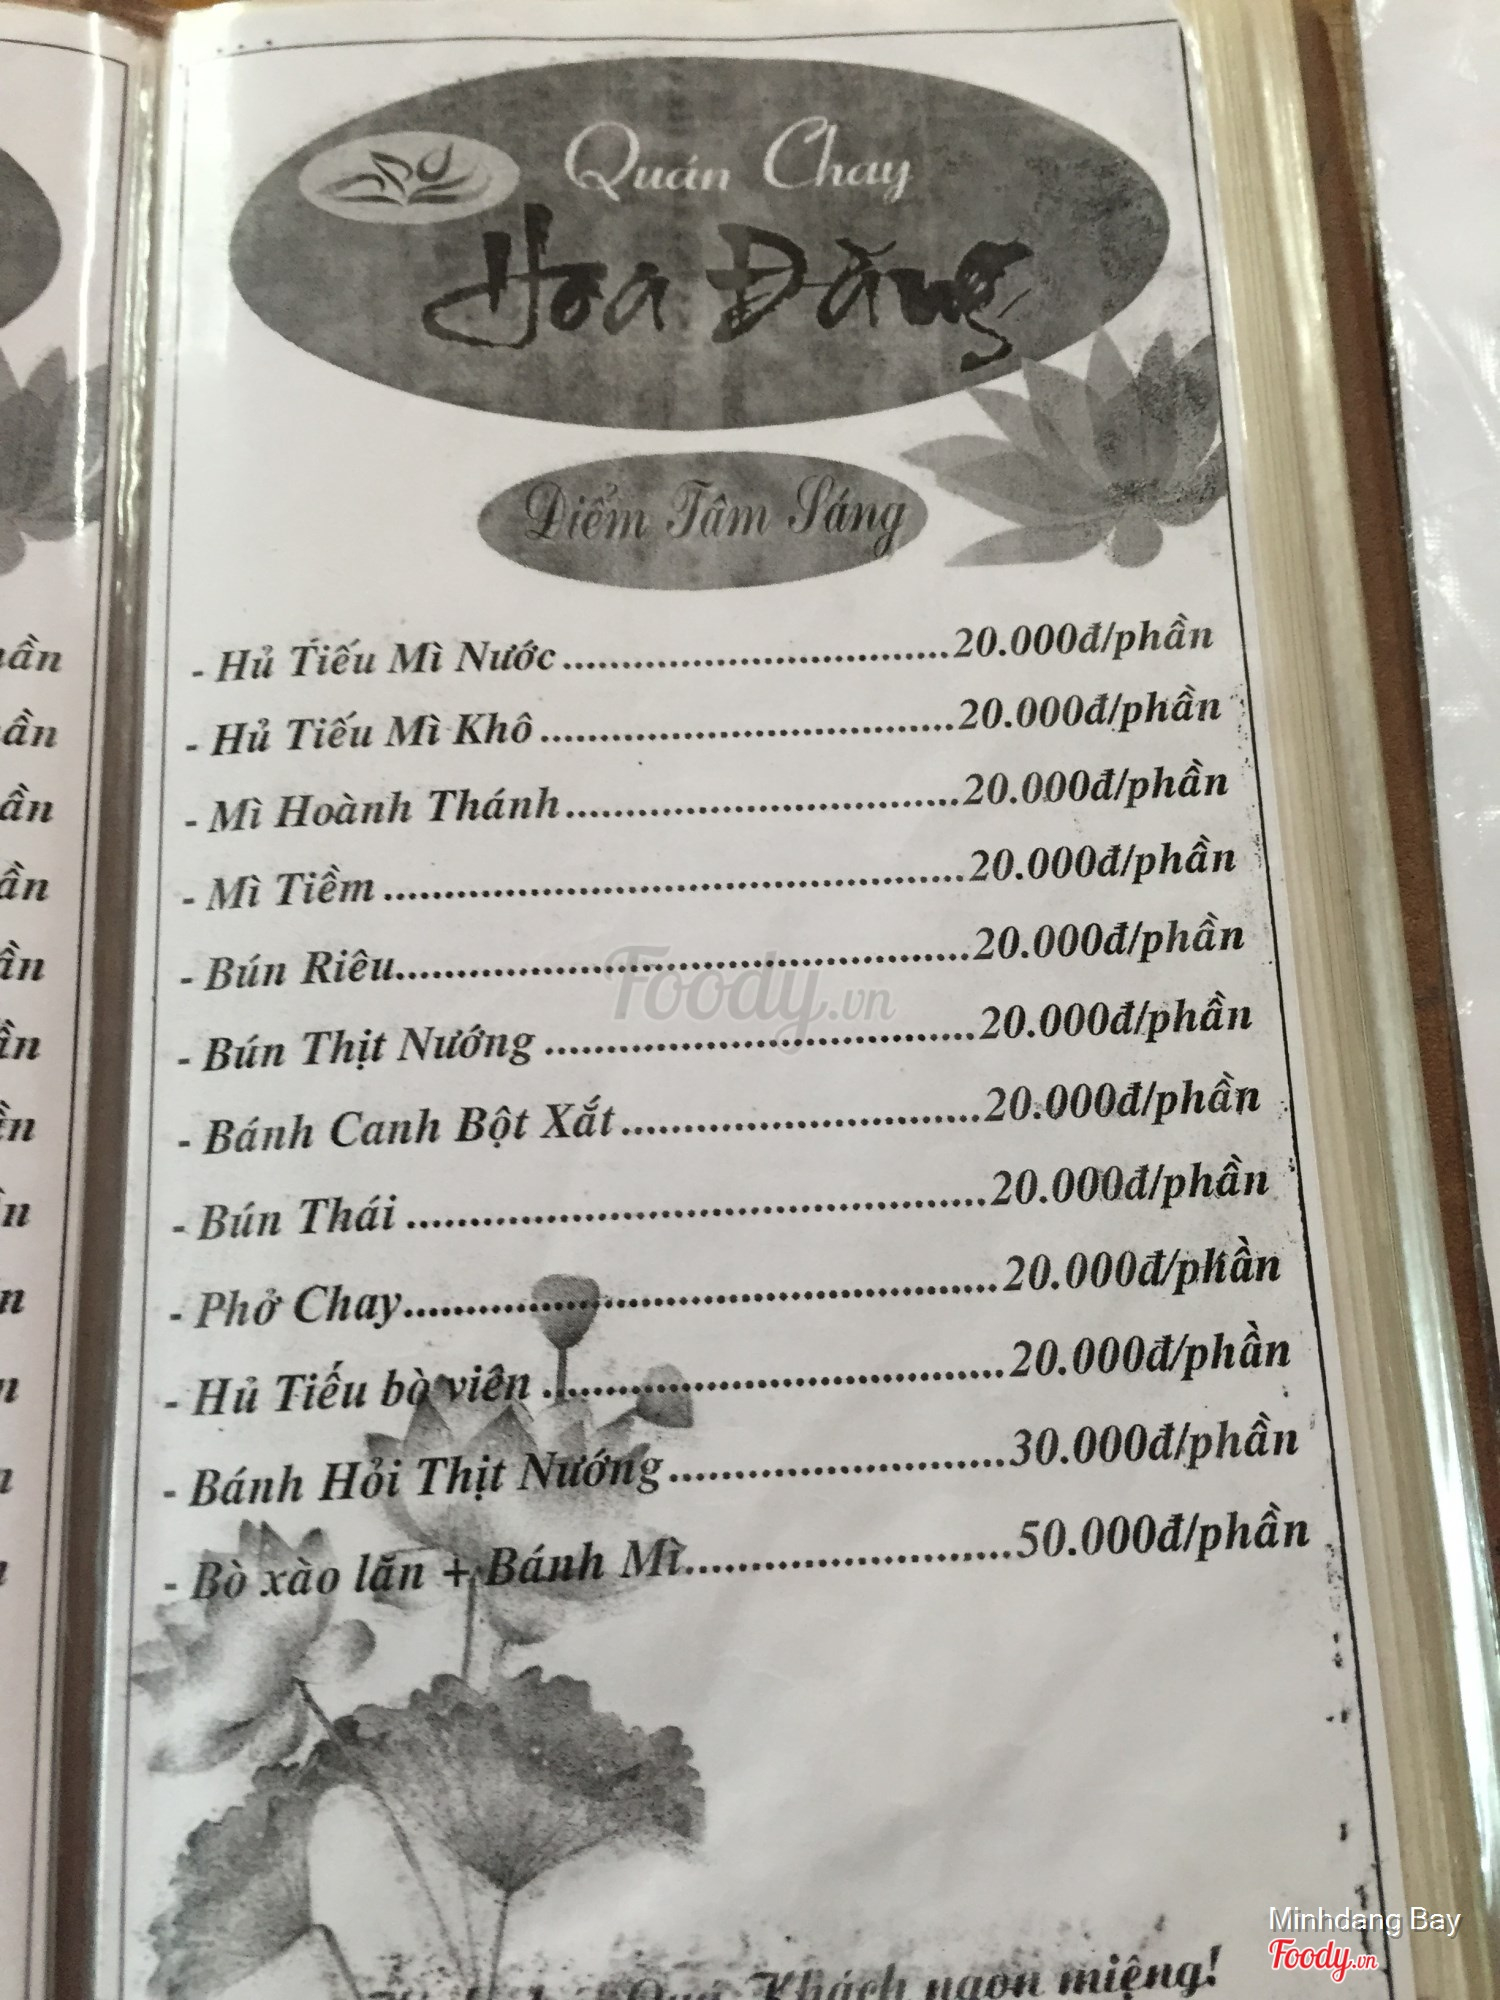 Quán Chay
Hoa Đăng
Điểm Tâm Sáng
- Hủ Tiếu Mì Nước..................................20.000đ/phần
- Hủ Tiếu Mì Khô....................................20.000đ/phần
- Mì Hoành Thánh..................................20.000đ/phần
- Mì Tiềm..................................................20.000đ/phần
- Bún Riêu.................................................20.000đ/phần
- Bún Thịt Nướng.....................................20.000đ/phần
- Bánh Canh Bột Xắt..............................20.000đ/phần
- Bún Thái.................................................20.000đ/phần
- Phở Chay.................................................20.000đ/phần
- Hủ Tiếu bò viên......................................20.000đ/phần
- Bánh Hỏi Thịt Nướng...........................30.000đ/phần
- Bò xào lăn + Bánh Mì..........................50.000đ/phần
Quý Khách ngon miệng!
Foody.vn
Minhdang Bay
Foody.vn